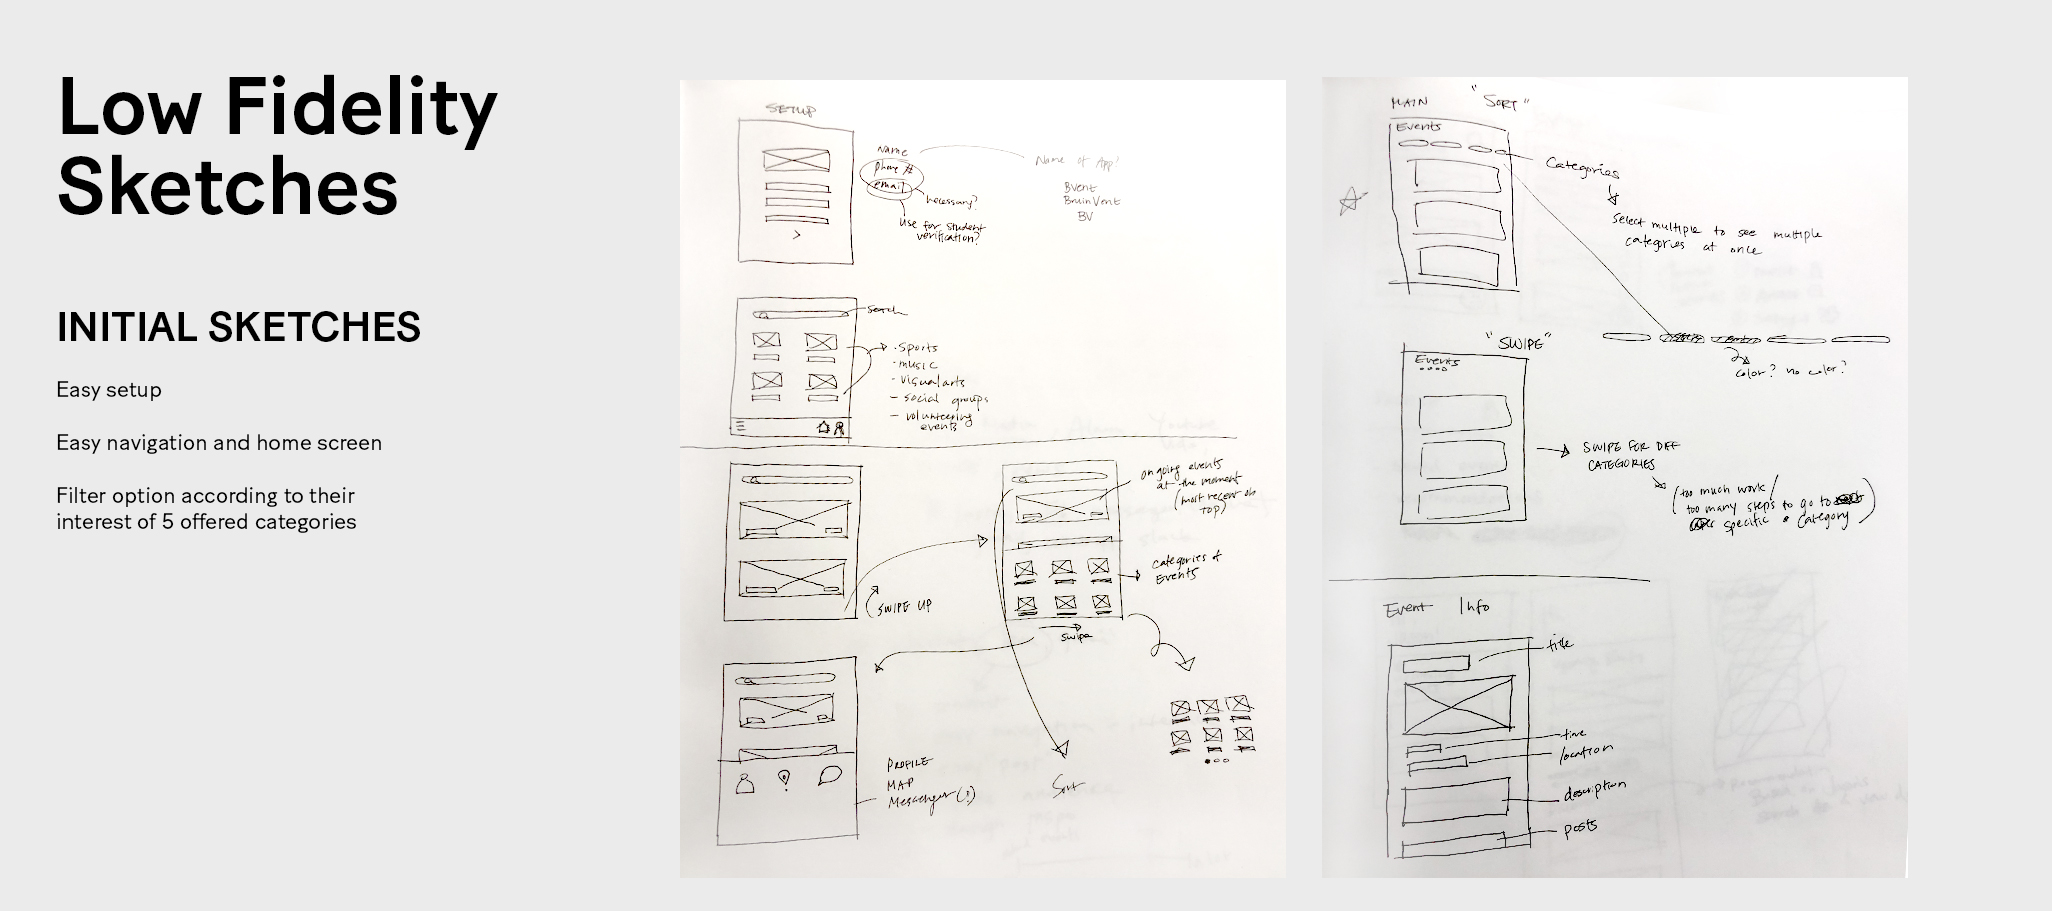 Low Fidelity
Sketches
INITIAL SKETCHES
Easy setup
Easy navigation and home screen
Filter option according to their
interest of 5 offered categories
SETUP
Name
phone #
email
necessary?
use for student
verification?
Name of App?
BVent
BruinVent
BV
Search
· Sports
· music
· visual arts
- social groups
- volunteering
events
SWIPE UP
on going events
at the moment
(most recent on
top)
categories of
Events
swipe
PROFILE
MAP
Messenger (?)
Sort
MAIN
"SORT"
Events
Categories
Select multiple to see multiple
categories at once
color? no color?
"SWIPE"
Events
SWIPE FOR DIFF
CATEGORIES
(too much work/
too many steps to go to
specific category)
Event Info
title
time
location
description
posts